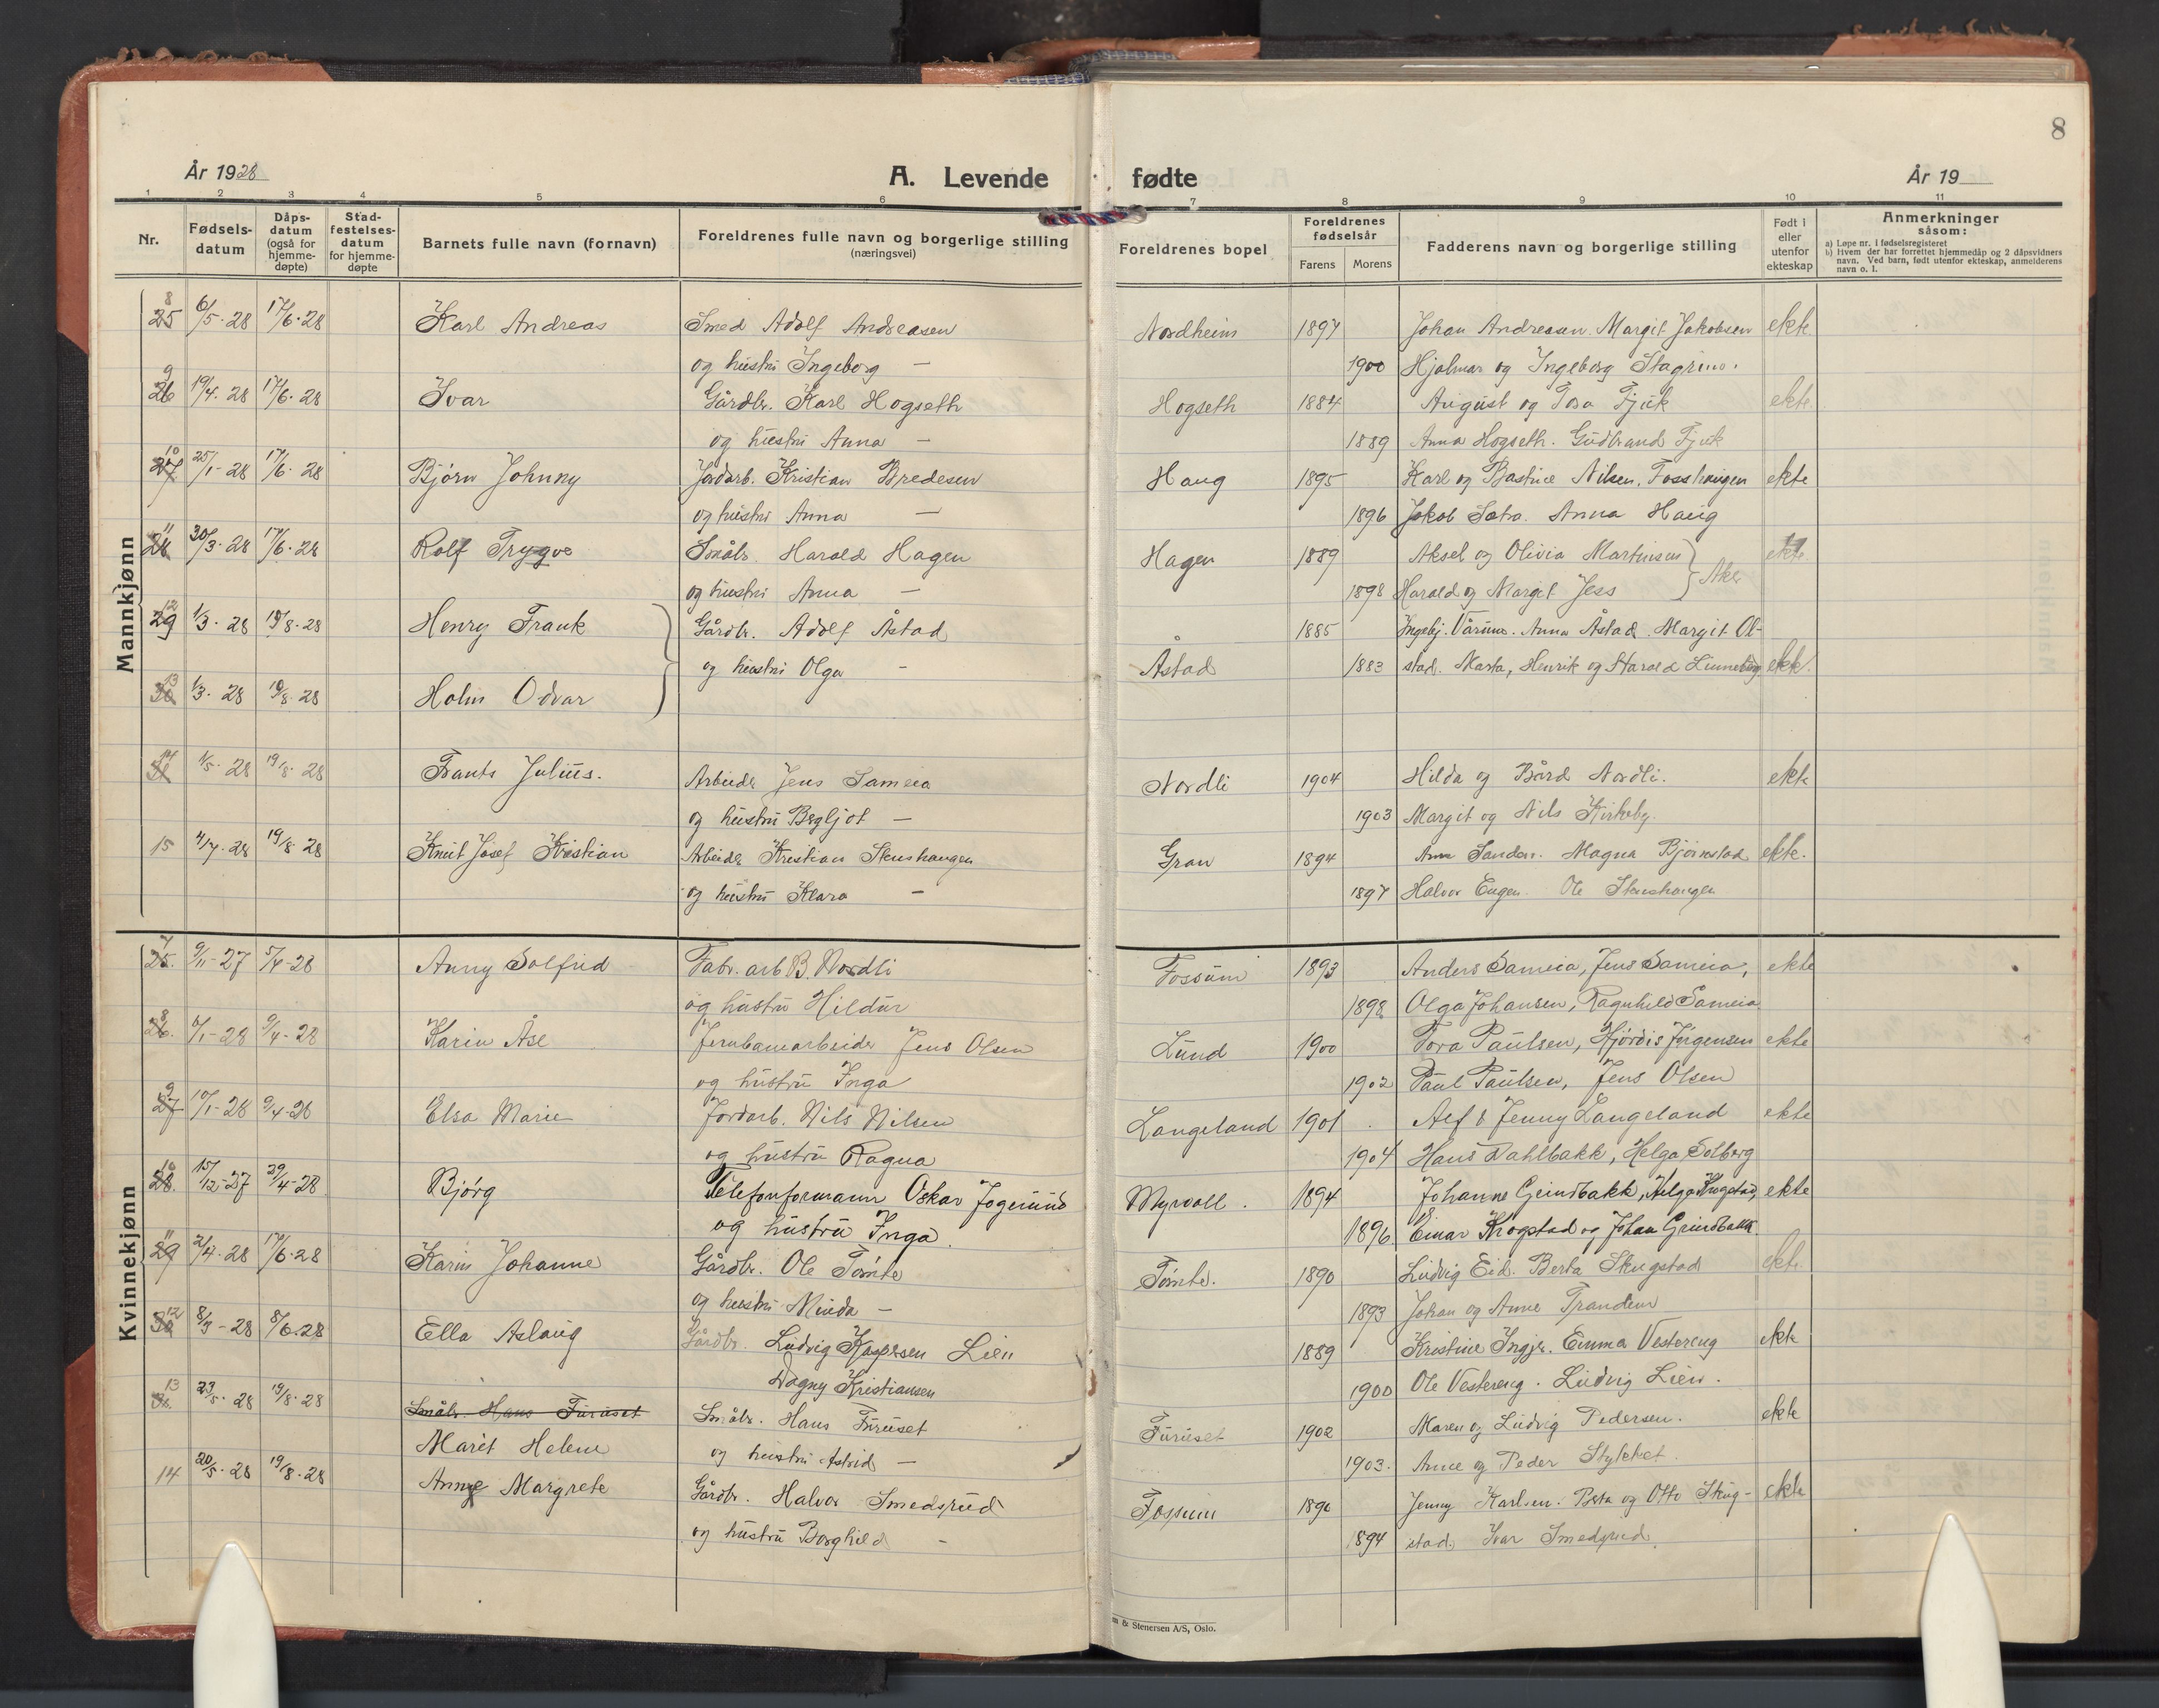 8
År 1928
A. Levende fødte
År 19
1 2 3 4 5 6 7 8 9 10 11
Nr.
Fødsels-
datum
Dåps-
datum
(også for
hjemme-
døpte)
Stad-
festelses-
datum
for hjemme-
døpte
Barnets fulle navn (fornavn)
Foreldrenes fulle navn og borgerlige stilling
(næringsvei)
Foreldrenes bopel
Foreldrenes
fødselsår
Farens Morens
Fadderens navn og borgerlige stilling
Født i
eller
utenfor
ekteskap
Anmerkninger
såsom:
a) Løpe nr. i fødselsregisteret
b) Hvem der har forrettet hjemmedåp og 2 dåpsvidners
navn. Ved barn, født utenfor ekteskap, anmelderens
navn o. l.
Mannkjønn
8
25 6/5-28 17/6-28 Karl Andreas Smed Adolf Andreasen Nordheim 1897 Johan Andreasen. Margit Jakobsen ekte
og hustru Ingeborg — 1900 Hjalmar og Ingeborg
9
26 19/4-28 17/6-28 Ivar Gårdbr. Karl Hogseth Hogseth 1884 August og Tora Fjuk ekte
og hustru Anna — 1889 Anna Hogseth. Gudbrand Fjuk
10
27 25/1-28 17/6-28 Bjørn Johnny Jordarb. Kristian Bredesen Haug 1895 Karl og Bastine Nilsen, Fosshaugen ekte
og hustru Anna — 1896 Jakob Anna Haug
11
28 30/3-28 17/6-28 Rolf Trygve Småbr. Harald Hagen Hagen 1889 Aksel og Olivia Martinsen ekte
og hustru Anna — 1898 Harald og Margit Jess Aker
12
29 1/3-28 19/8-28 Henry Frank Gårdbr. Adolf Åstad 1885 Ingebj. Vårum. Anna Åstad. Margit Ol-
og hustru Olga — Åstad 1883 stad. Marta, Henrik og Harald Linneberg ekte
13
30 1/3-28 19/8-28 Holm Odvar
14
31 1/5-28 19/8-28 Frants Julius. Arbeider Jens Sameia Nordli 1904 Hilda og Bård Nordli. ekte
og hustru Bergljot — 1903 Margit og Nils Kirkeby.
15 4/7-28 19/8-28 Knut Josef Kristian Arbeider Kristian Stenshaugen Gran 1894 Magna Bjørnstad ekte.
og hustru Klara — 1897 Halvor Engen. Ole Stenshaugen
Kvinnekjønn
7
25. 9/11-27 5/4-28 Anny Solfrid Fabr. arb B. Nordli Fossum 1893 Anders Sameia, Jens Sameia, ekte
og hustru Hildur 1898 Olga Johansen, Ragnhild Sameia
8
26. 6/1-28 9/4-28 Karin Åse Jernbanearbeider Jens Olsen Lund 1900 Tora Paulsen, Hjørdis Jørgensen ekte
og hustru Inga 1902 Paul Paulsen, Jens Olsen
9
27 10/1-28 9/4-28 Elsa Marie Jordarb. Nils Nilsen Langeland 1901 Alf & Jenny Langeland ekte
og hustru Ragna 1904 Hans Dahlbakk, Helga Solberg
10
28. 15/12-27 29/4-28 Bjørg Telefonformann Oskar Myrvoll. 1894 Johanne Grindbakk, Helga Krogstad ekte
og hustru Inga. 1896 Einar Krogstad og Johan Grindbakk.
11
29 2/4-28 17/6-28 Karin Johanne Gårdbr. Ole Tømte Tømte. 1890 Ludvig Eid. Berta Skugstad ekte
og hustru Minda — 1893 Johan og Anne Trandem
12
30 8/3-28 8/6-28 Ella Aslaug Gårdbr. Ludvig Kaspersen Lien 1889 Kristine Ingjer. Emma Vestereng ekte
Dagny Kristiansen 1900 Ole Vestereng. Ludvig Lien.
13
31. 23/5-28 19/8-28 Småbr. Hans Furuset Småbr. Hans Furuset Furuset 1902 Maren og Ludvig Pedersen. ekte
Marit Helene og hustru Astrid — 1903. Anne og Peder Stykket.
14 20/5-28 19/8-28 Anne Margrete Gårdbr. Halvor Smedsrud Fossum 1890 Jenny Karlsen. Berta og Otto Skug- ekte
og hustru Borghild — 1894 stad. Ivar Smedsrud.
& Stenersen A/S, Oslo.